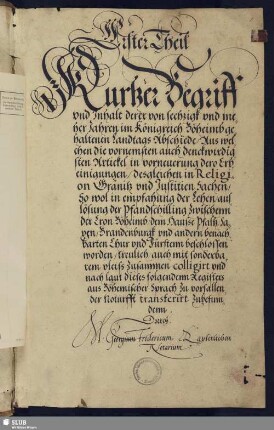 Erster Theil
Kurtzer Begriff
vnd Inhalt derer von sechtzigk vnd me
her Jahren im Königreich Böheimb ge
haltenen Landtags Abschiede Aus wel
chen die vornemsten auch denckwirdig
sten Artickel in vorneuerung dero Erb
einigungen / desgleichen in Religi
on Gränitz vnd Justitien Sachen /
So wol in empfahung der Lehen auf
lösung der Pfandschilling zwischenn
der Cron Böheimb dem Hause Pfaltz Sa
xen / Brandenburgk vnd andern benach
barten Chur vnd Fürsten beschlossen
worden / treulich auch mit sonderba
rem vleiss Zusammen colligirt vnd
nach laut dieses folgendenn Registers
aus Böhmischer Sprach zu vorfallen
der Noturfft transferirt Zubefinn
denn
Durch
M. Georgium Fridericum
SLUB